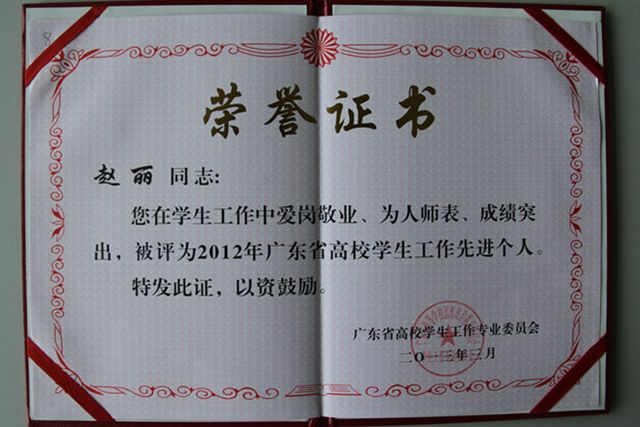 8
荣誉证书
赵丽 同志:
您在学生工作中爱岗敬业、为人师表、成绩突
出，被评为2012年广东省高校学生工作先进个人。
特发此证，以资鼓励。
广东省高校学生工作专业委员会
二〇一三年三月